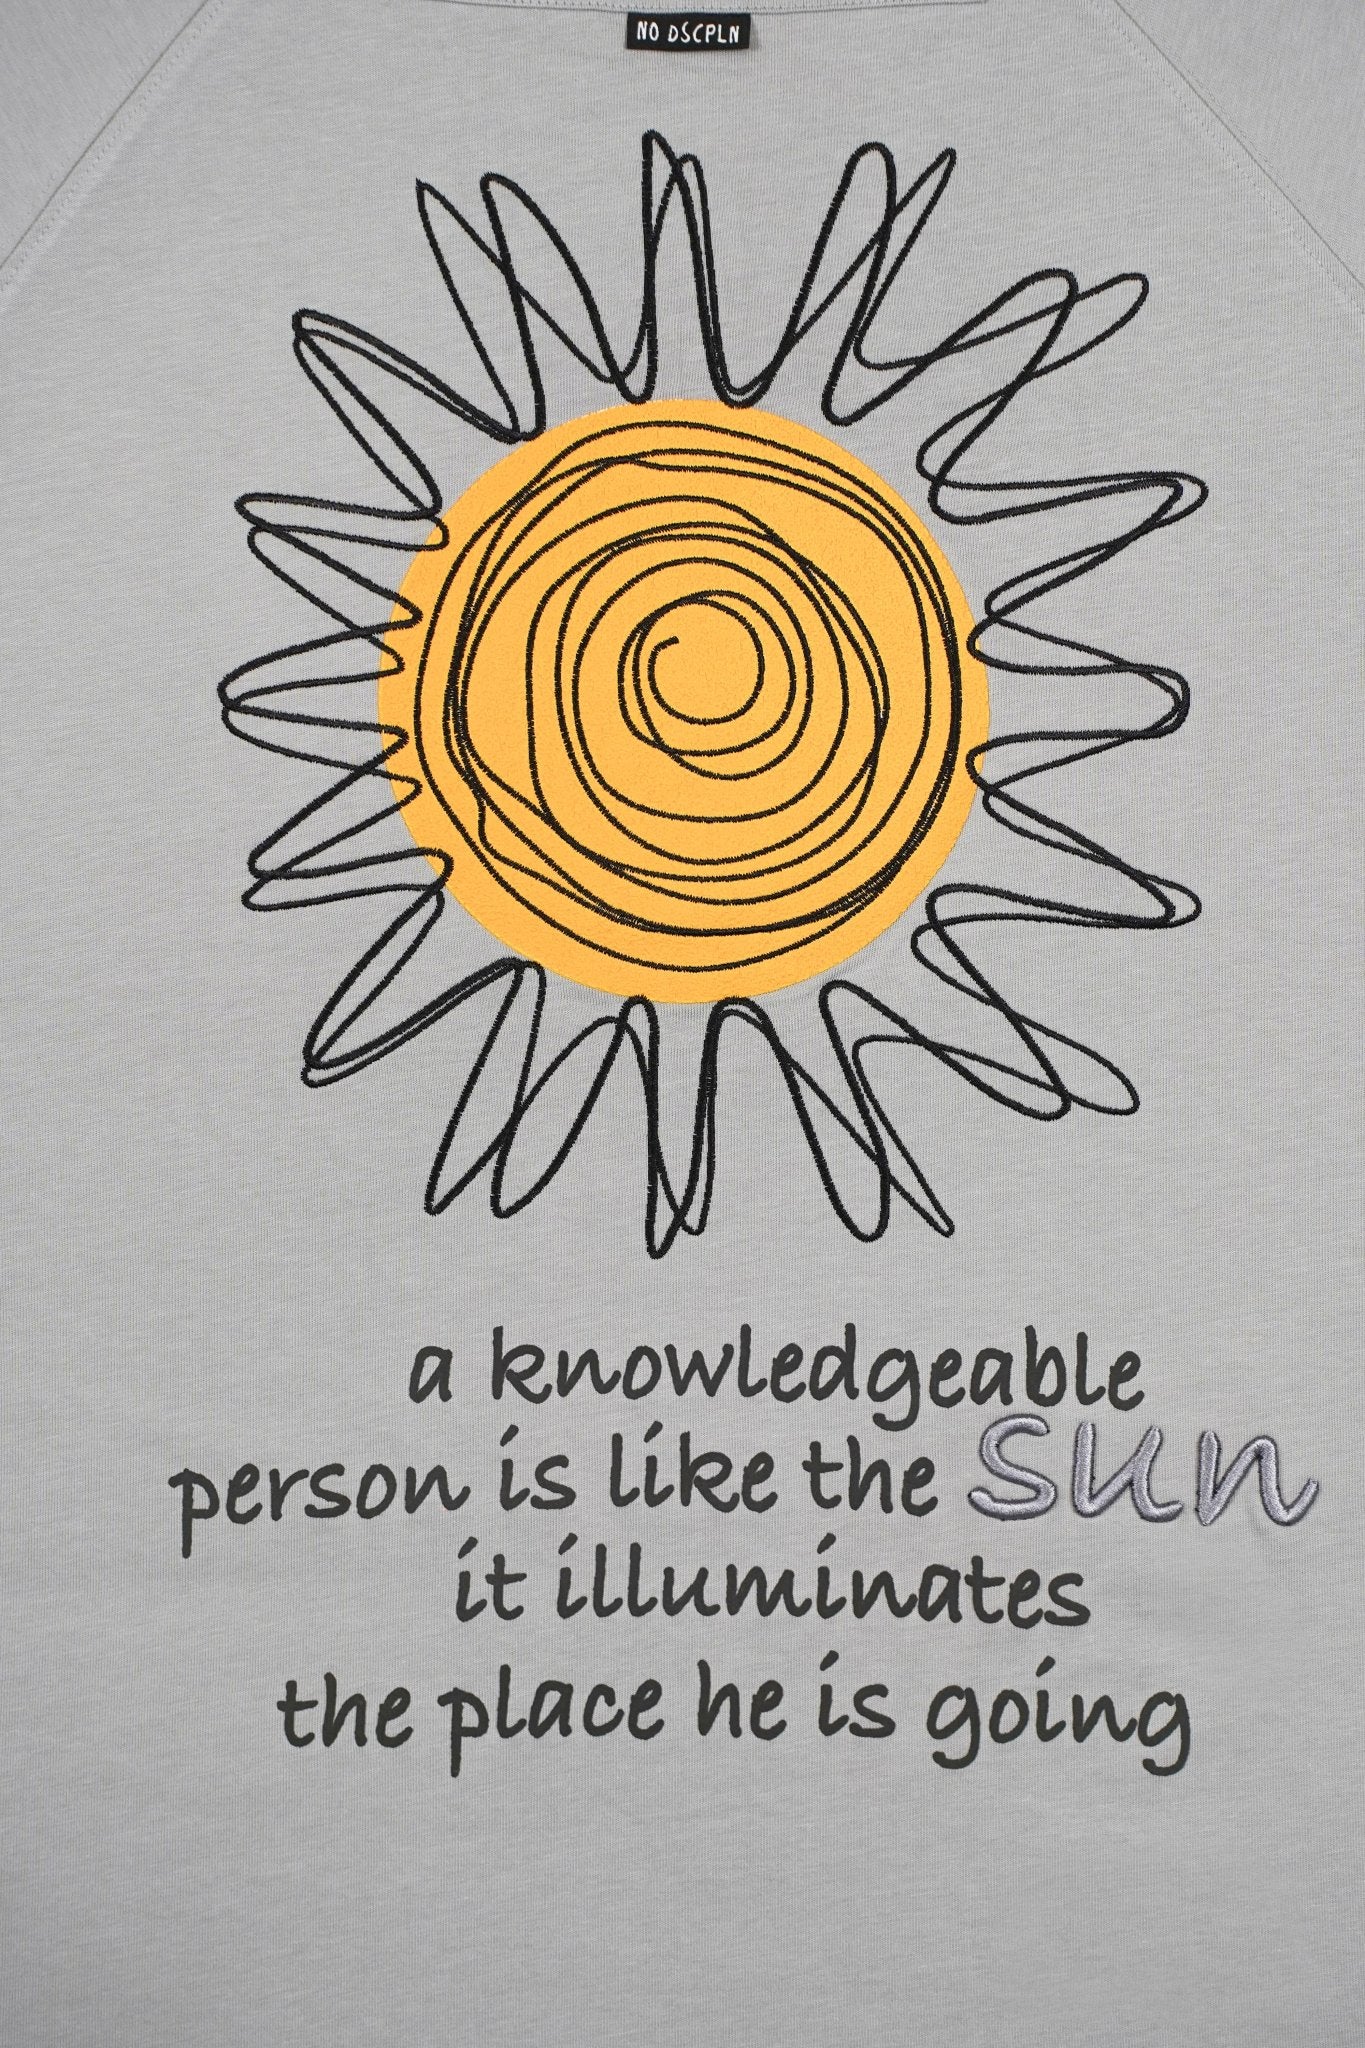 NO DSCPLN
a knowledgeable
person is like the sun
it illuminates
the place he is going